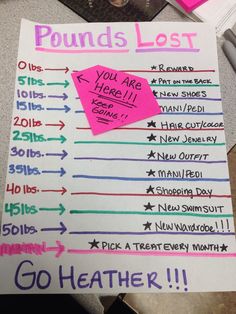 Pounds Lost
0lbs. → ★ Reward
5lbs. → ★ Pat on the back
10lbs. → ★ New Shoes
15lbs. → ★ Mani/Pedi
You Are
Here!!!
Keep
Going!!
20lbs. → ★ Haircut/Color
25lbs. → ★ New Jewelry
30lbs. → ★ New Outfit
35lbs. → ★ Mani/Pedi
40lbs. → ★ Shopping Day
45lbs. → ★ New Swimsuit
50lbs. → ★ New Wardrobe!!!
★ Pick a treat every month ★
Go Heather!!!